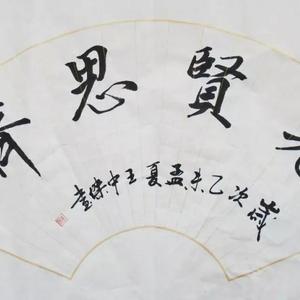 賢思齊
歲次乙未孟夏王中書